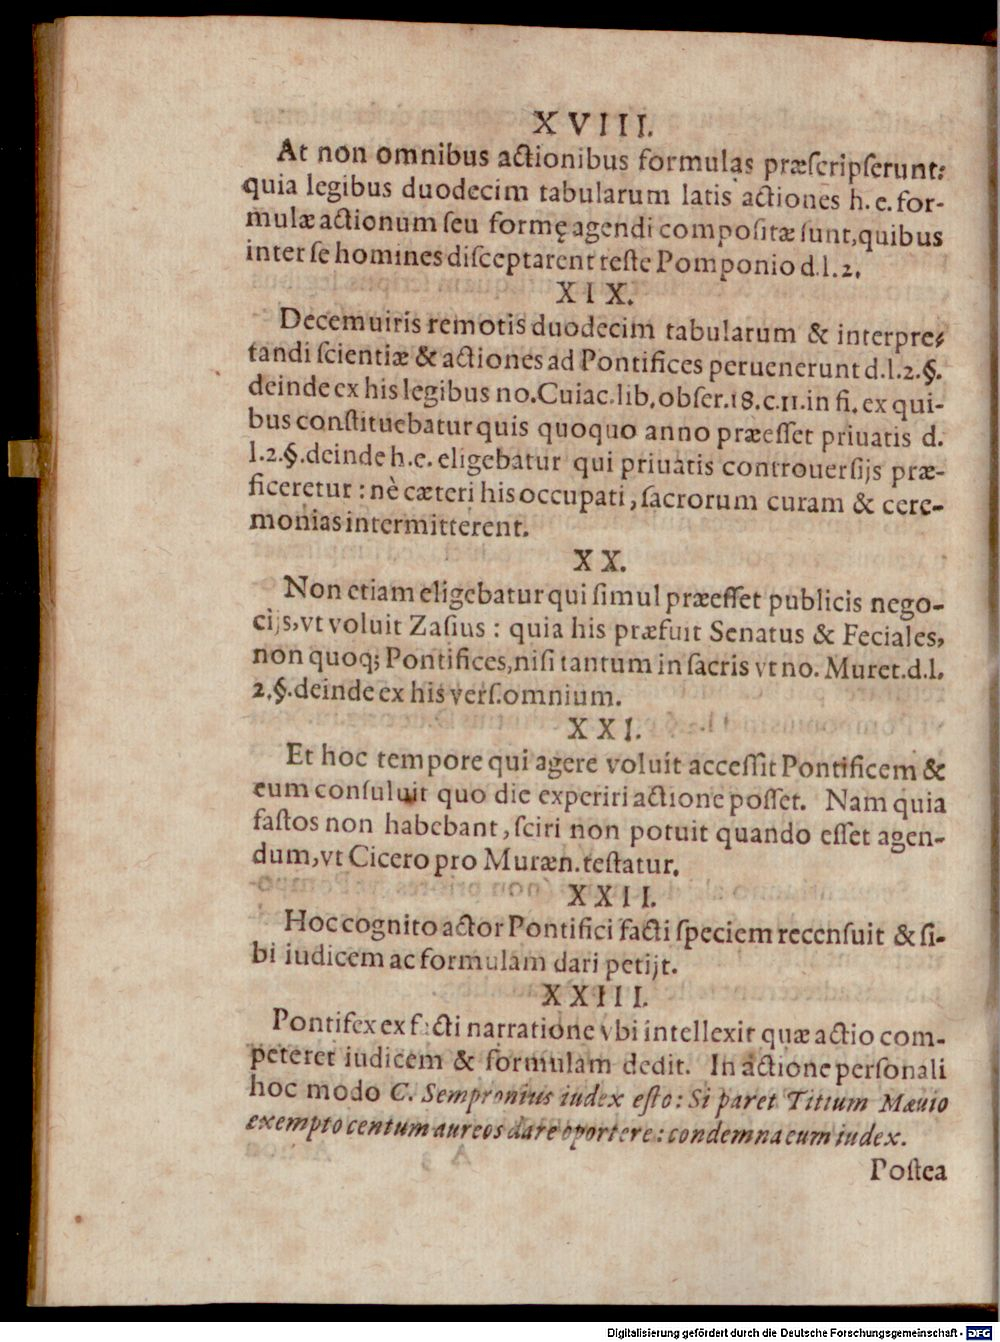 XVIII.
At non omnibus actionibus formulas præſcripſerunt:
quia legibus duodecim tabularum latis actiones h. e. for-
mulæ actionum ſeu formę agendi compoſitæ ſunt, quibus
inter ſe homines diſceptarent teſte Pomponio d. l. 2.
XIX.
Decemuiris remotis duodecim tabularum & interpre-
tandi ſcientiæ & actiones ad Pontifices peruenerunt d. l. 2. §.
deinde ex his legibus no. Cuiac. lib. obſer. 18. c. 11. in fi. ex qui-
bus conſtituebatur quis quoquo anno præeſſet priuatis d.
l. 2. §. deinde h. e. eligebatur qui priuatis controuerſijs præ-
ficeretur : nè cæteri his occupati, ſacrorum curam & cere-
monias intermitterent.
XX.
Non etiam eligebatur qui ſimul præeſſet publicis nego-
cijs, vt voluit Zaſius : quia his præfuit Senatus & Feciales,
non quoq; Pontifices, niſi tantum in ſacris vt no. Muret. d. l.
2. §. deinde ex his verſ. omnium.
XXI.
Et hoc tempore qui agere voluit acceſſit Pontificem &
eum conſuluit quo die experiri actione poſſet. Nam quia
faſtos non habebant, ſciri non potuit quando eſſet agen-
dum, vt Cicero pro Muræn. teſtatur.
XXII.
Hoc cognito actor Pontifici facti ſpeciem recenſuit & ſi-
bi iudicem ac formulam dari petijt.
XXIII.
Pontifex ex facti narratione vbi intellexit quæ actio com-
peteret iudicem & formulam dedit. In actione perſonali
hoc modo C. Sempronius iudex eſto : Si paret Titium Mæuio
exempto centum aureos dare oportere : condemna eum iudex.
Poſtea
Digitalisierung gefördert durch die Deutsche Forschungsgemeinschaft - DFG